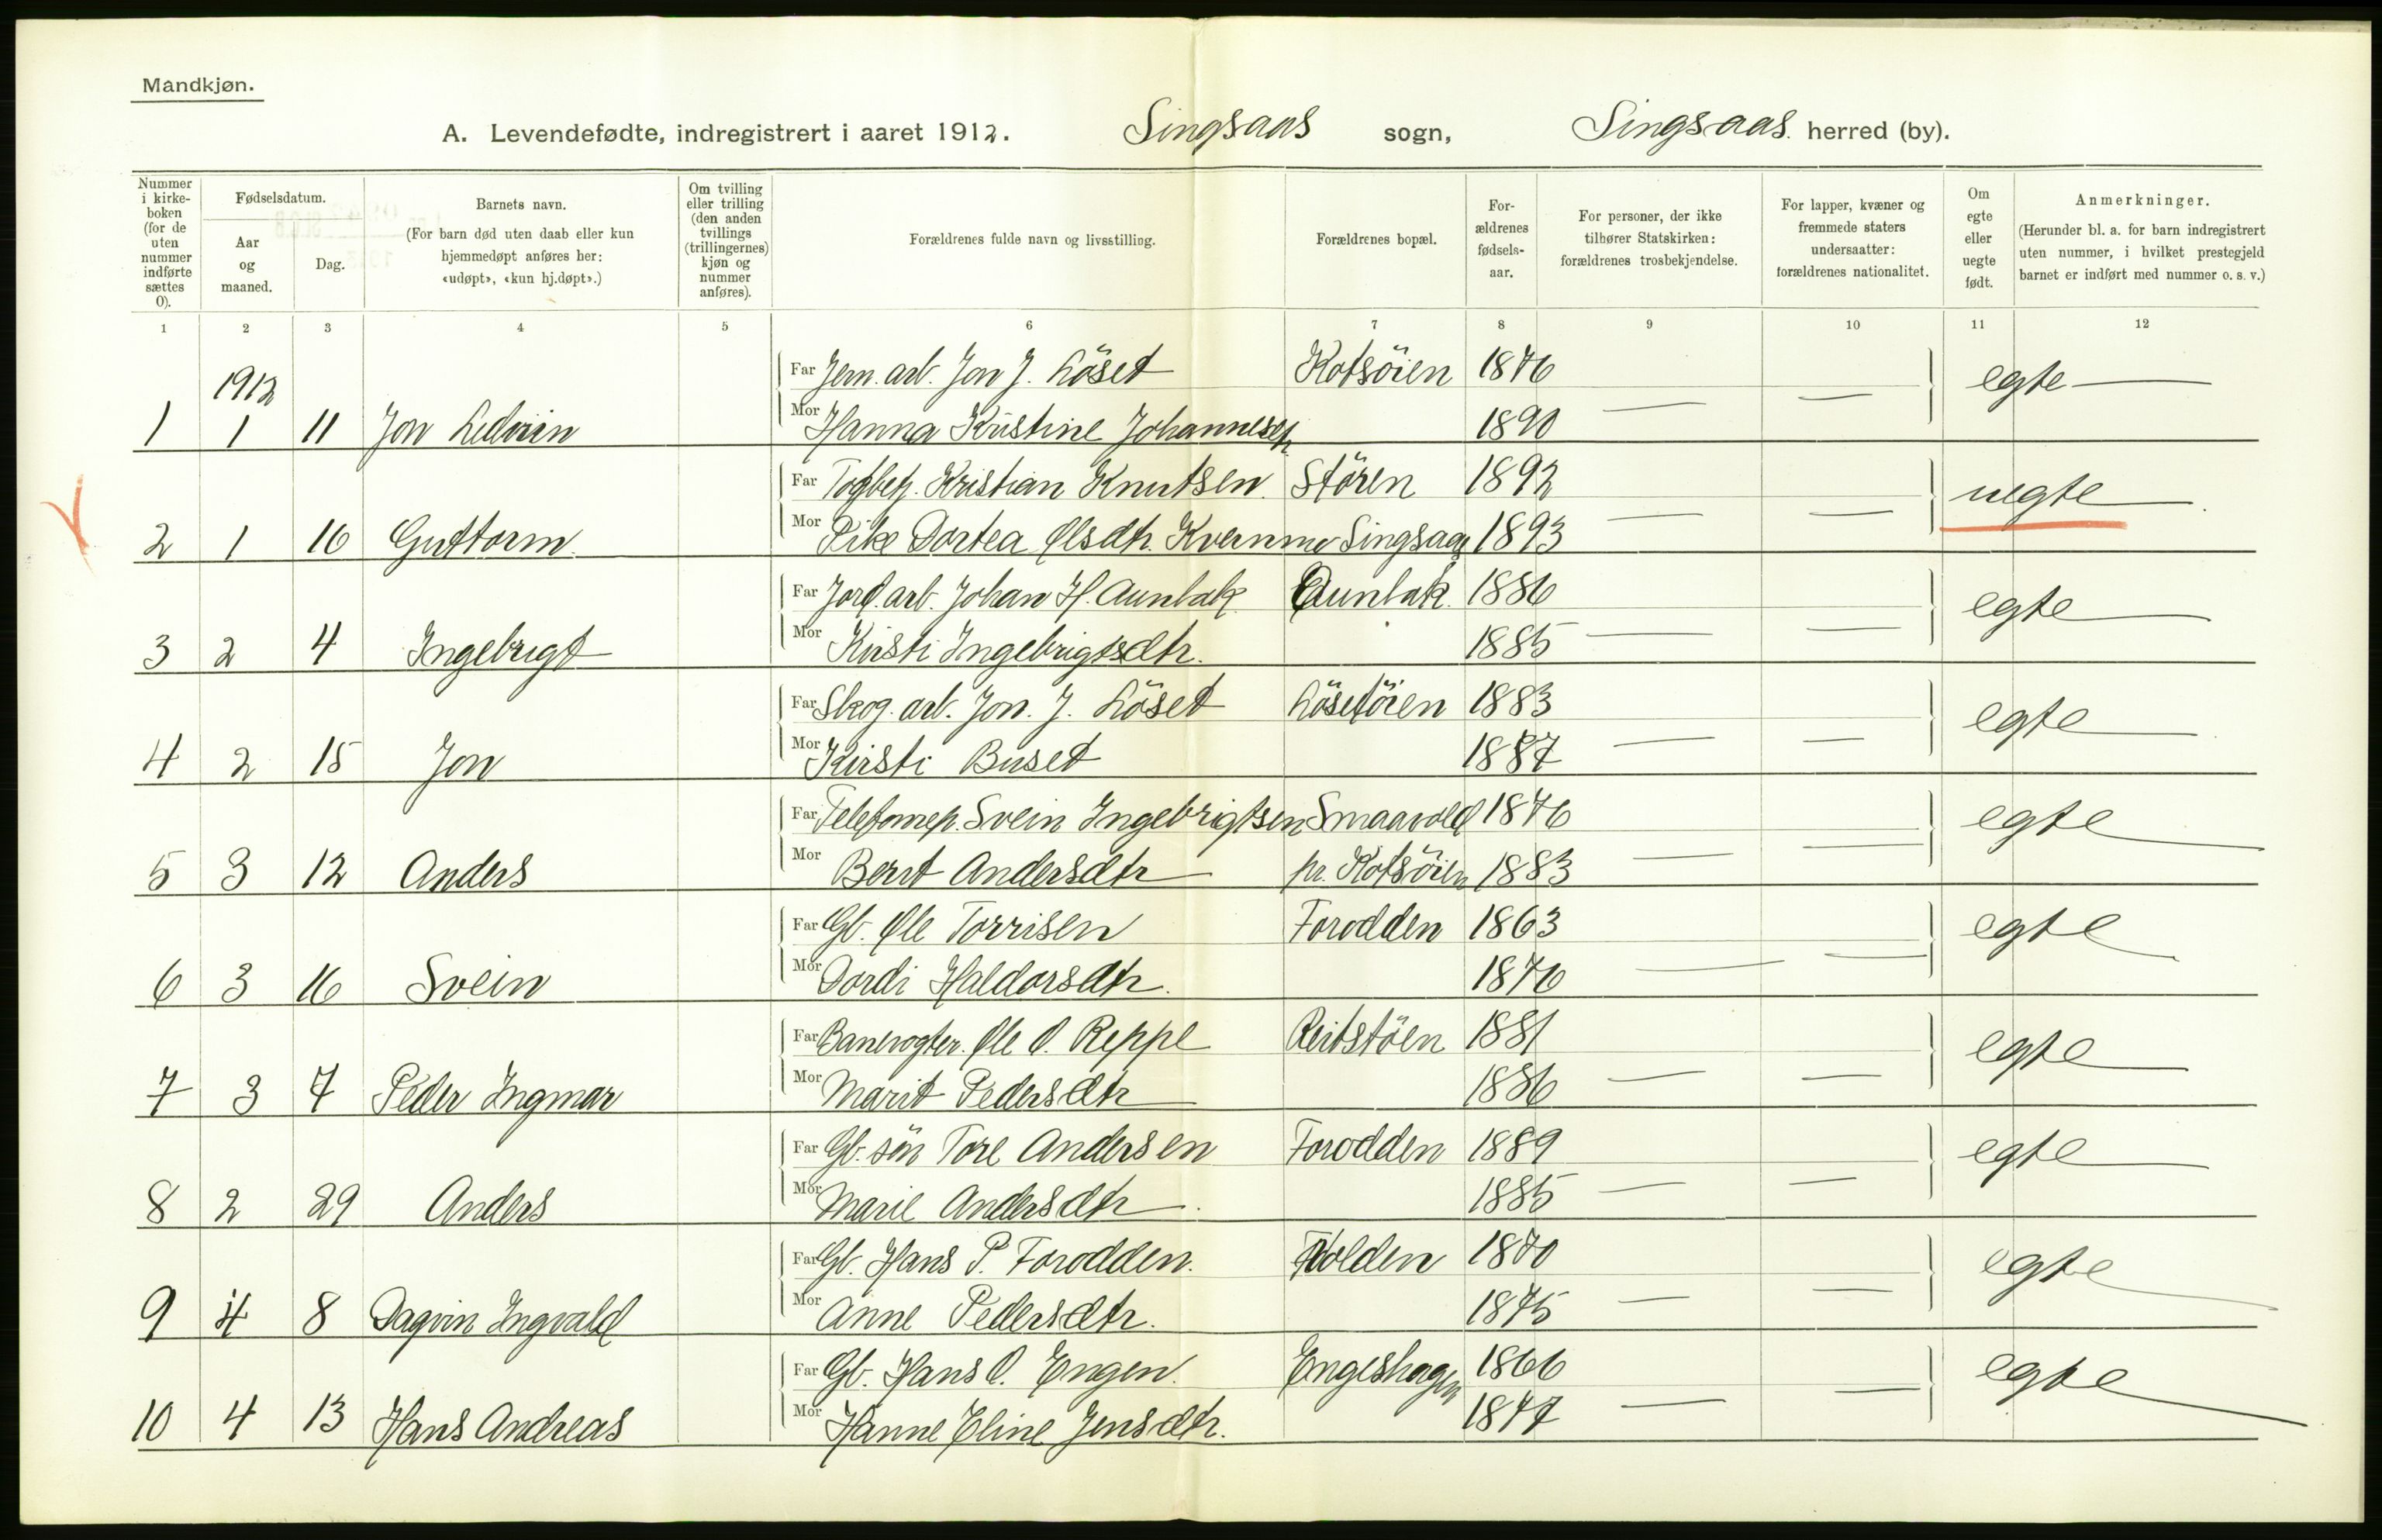 Mandkjøn.
A. Levendefødte, indregistrert i aaret 1912. Singsaas sogn, Singsaas herred (by).
Nummer i kirke-boken (for de uten nummer indførte sættes 0).
Fødselsdatum.
Aar og maaned.
Dag.
Barnets navn.
(For barn død uten daab eller kun hjemmedøpt anføres her: «udøpt», «kun hj.døpt».)
Om tvilling eller trilling (den anden tvillings (trillingernes) kjøn og nummer anføres).
Forældrenes fulde navn og livsstilling.
Forældrenes bopæl.
For-ældrenes fødsels-aar.
For personer, der ikke tilhører Statskirken: forældrenes trosbekjendelse.
For lapper, kvæner og fremmede staters undersaatter: forældrenes nationalitet.
Om egte eller uegte født.
Anmerkninger.
(Herunder bl. a. for barn indregistrert uten nummer, i hvilket prestegjeld barnet er indført med nummer o. s. v.)
1 2 3 4 5 6 7 8 9 10 11 12
1912
Far Jern. arb. Jon J. Löset Kotsöien 1876 egte
1 1 11 Jon Ledvin Mor Hanna Kristine Johannesen 1890
Far Togbetj. Kristian Knutsen Stören 1892 uegte
2 1 16 Guttorm Mor Pike Dortea Olsdtr. Kvernmo Singsaas 1893
Far Jord. arb. Johan H. Aunbak Aunbak 1886 egte
3 2 4 Ingebrigt Mor Kirsti Ingebrigtsdtr. 1885
Far Skog. arb. Jon. J. Löset Lösetöien 1883 egte
4 2 15 Jon Mor Kirsti Buset 1887
Far Svein Ingebrigtsen Smaavold 1876 egte
5 3 12 Anders Mor Berit Andersdtr pr. Kotsöien 1883
Far Gb. Ole Torrisen Forodden 1863 egte
6 3 16 Svein Mor Dordi Haldorsdtr. 1876
Far Banevogter. Ole O. Reppe Reitstöen 1881 egte
7 3 7 Peder Ingmar Mor Marit Pedersdtr 1886
Far Gb. sön Tore Andersen Forodden 1889 egte
8 2 29 Anders Mor Marie Andersdtr. 1885
Far Gb. Hans P. Forodden. Folden 1870 egte
9 4 8 Dagvin Ingvald Mor Anne Pedersdtr. 1875
Far Gb. Hans O. Engen. Engeshagen 1866 egte
10 4 13 Hans Andreas Mor Hanne Eline Jensdtr. 1877